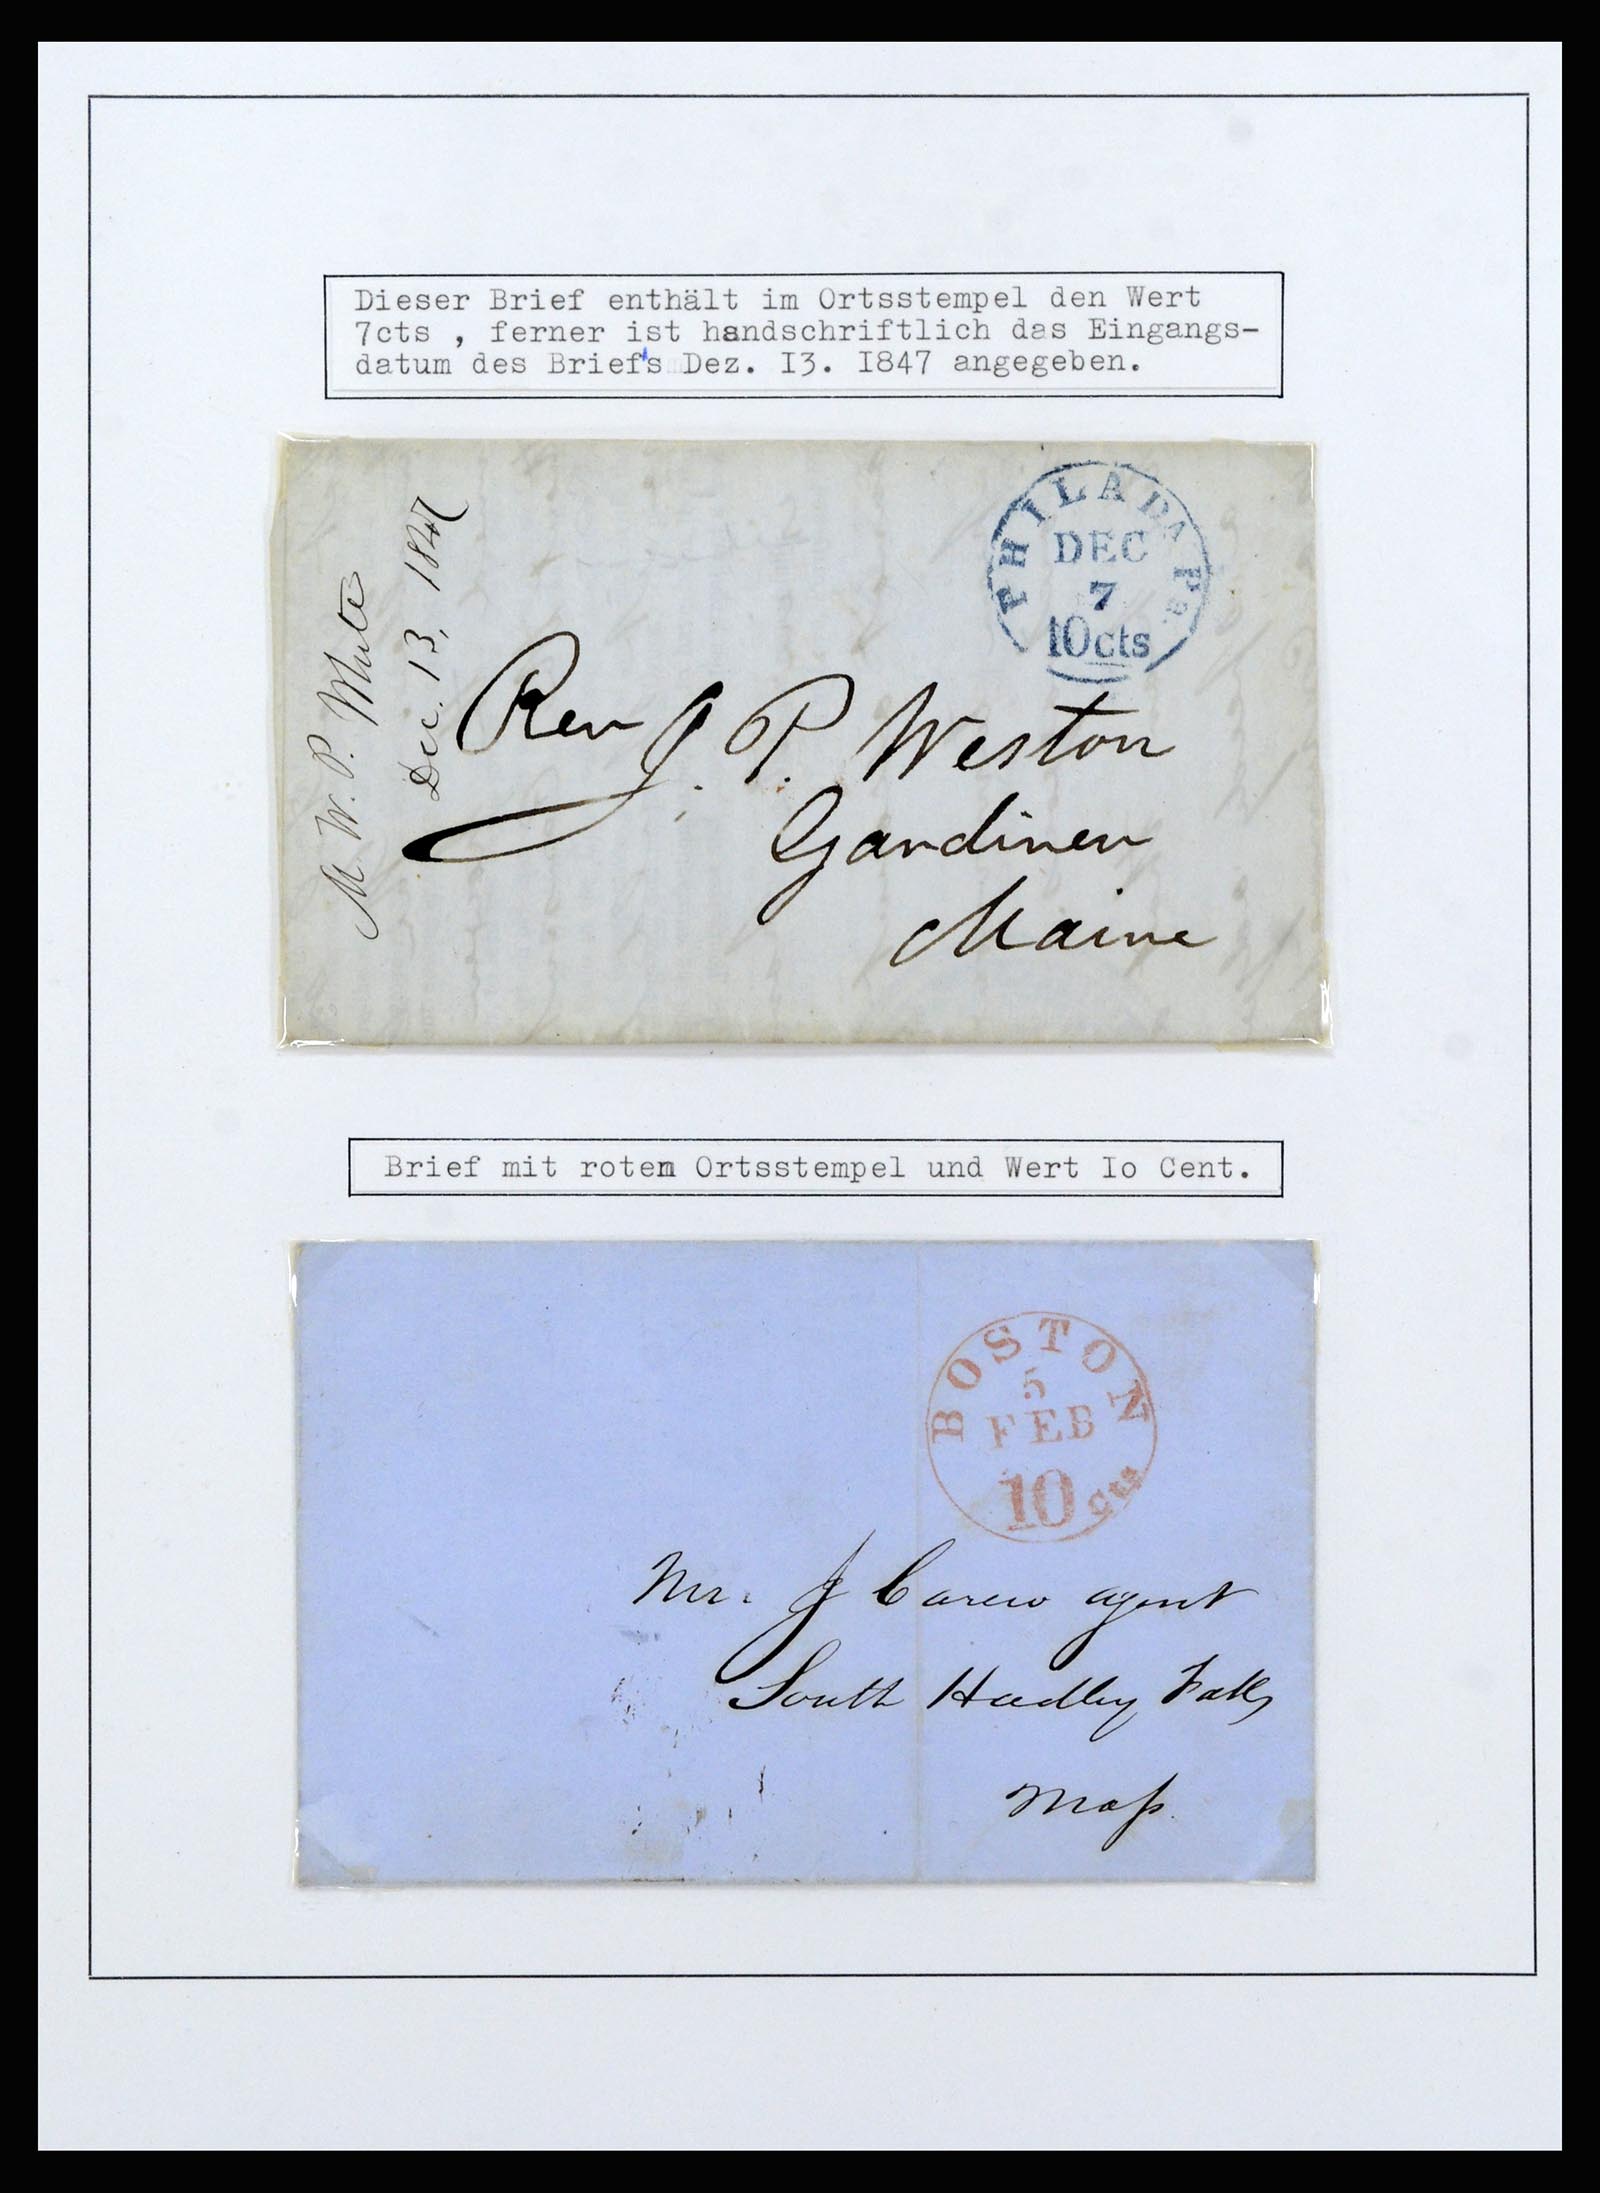 Dieser Brief enthält im Ortsstempel den Wert
7cts , ferner ist handschriftlich das Eingangs-
datum des Briefs Dez. I3. I847 angegeben.
M. W. P.
Dec. 13, 1847
PHILADA. Pa.
DEC
7
10cts
Rev J. P. Weston
Gardiner
Maine
Brief mit rotem Ortsstempel und Wert Io Cent.
BOSTON
5
FEB
10 cts
Mr. J Carew agent
South Hadley Falls
Mass.